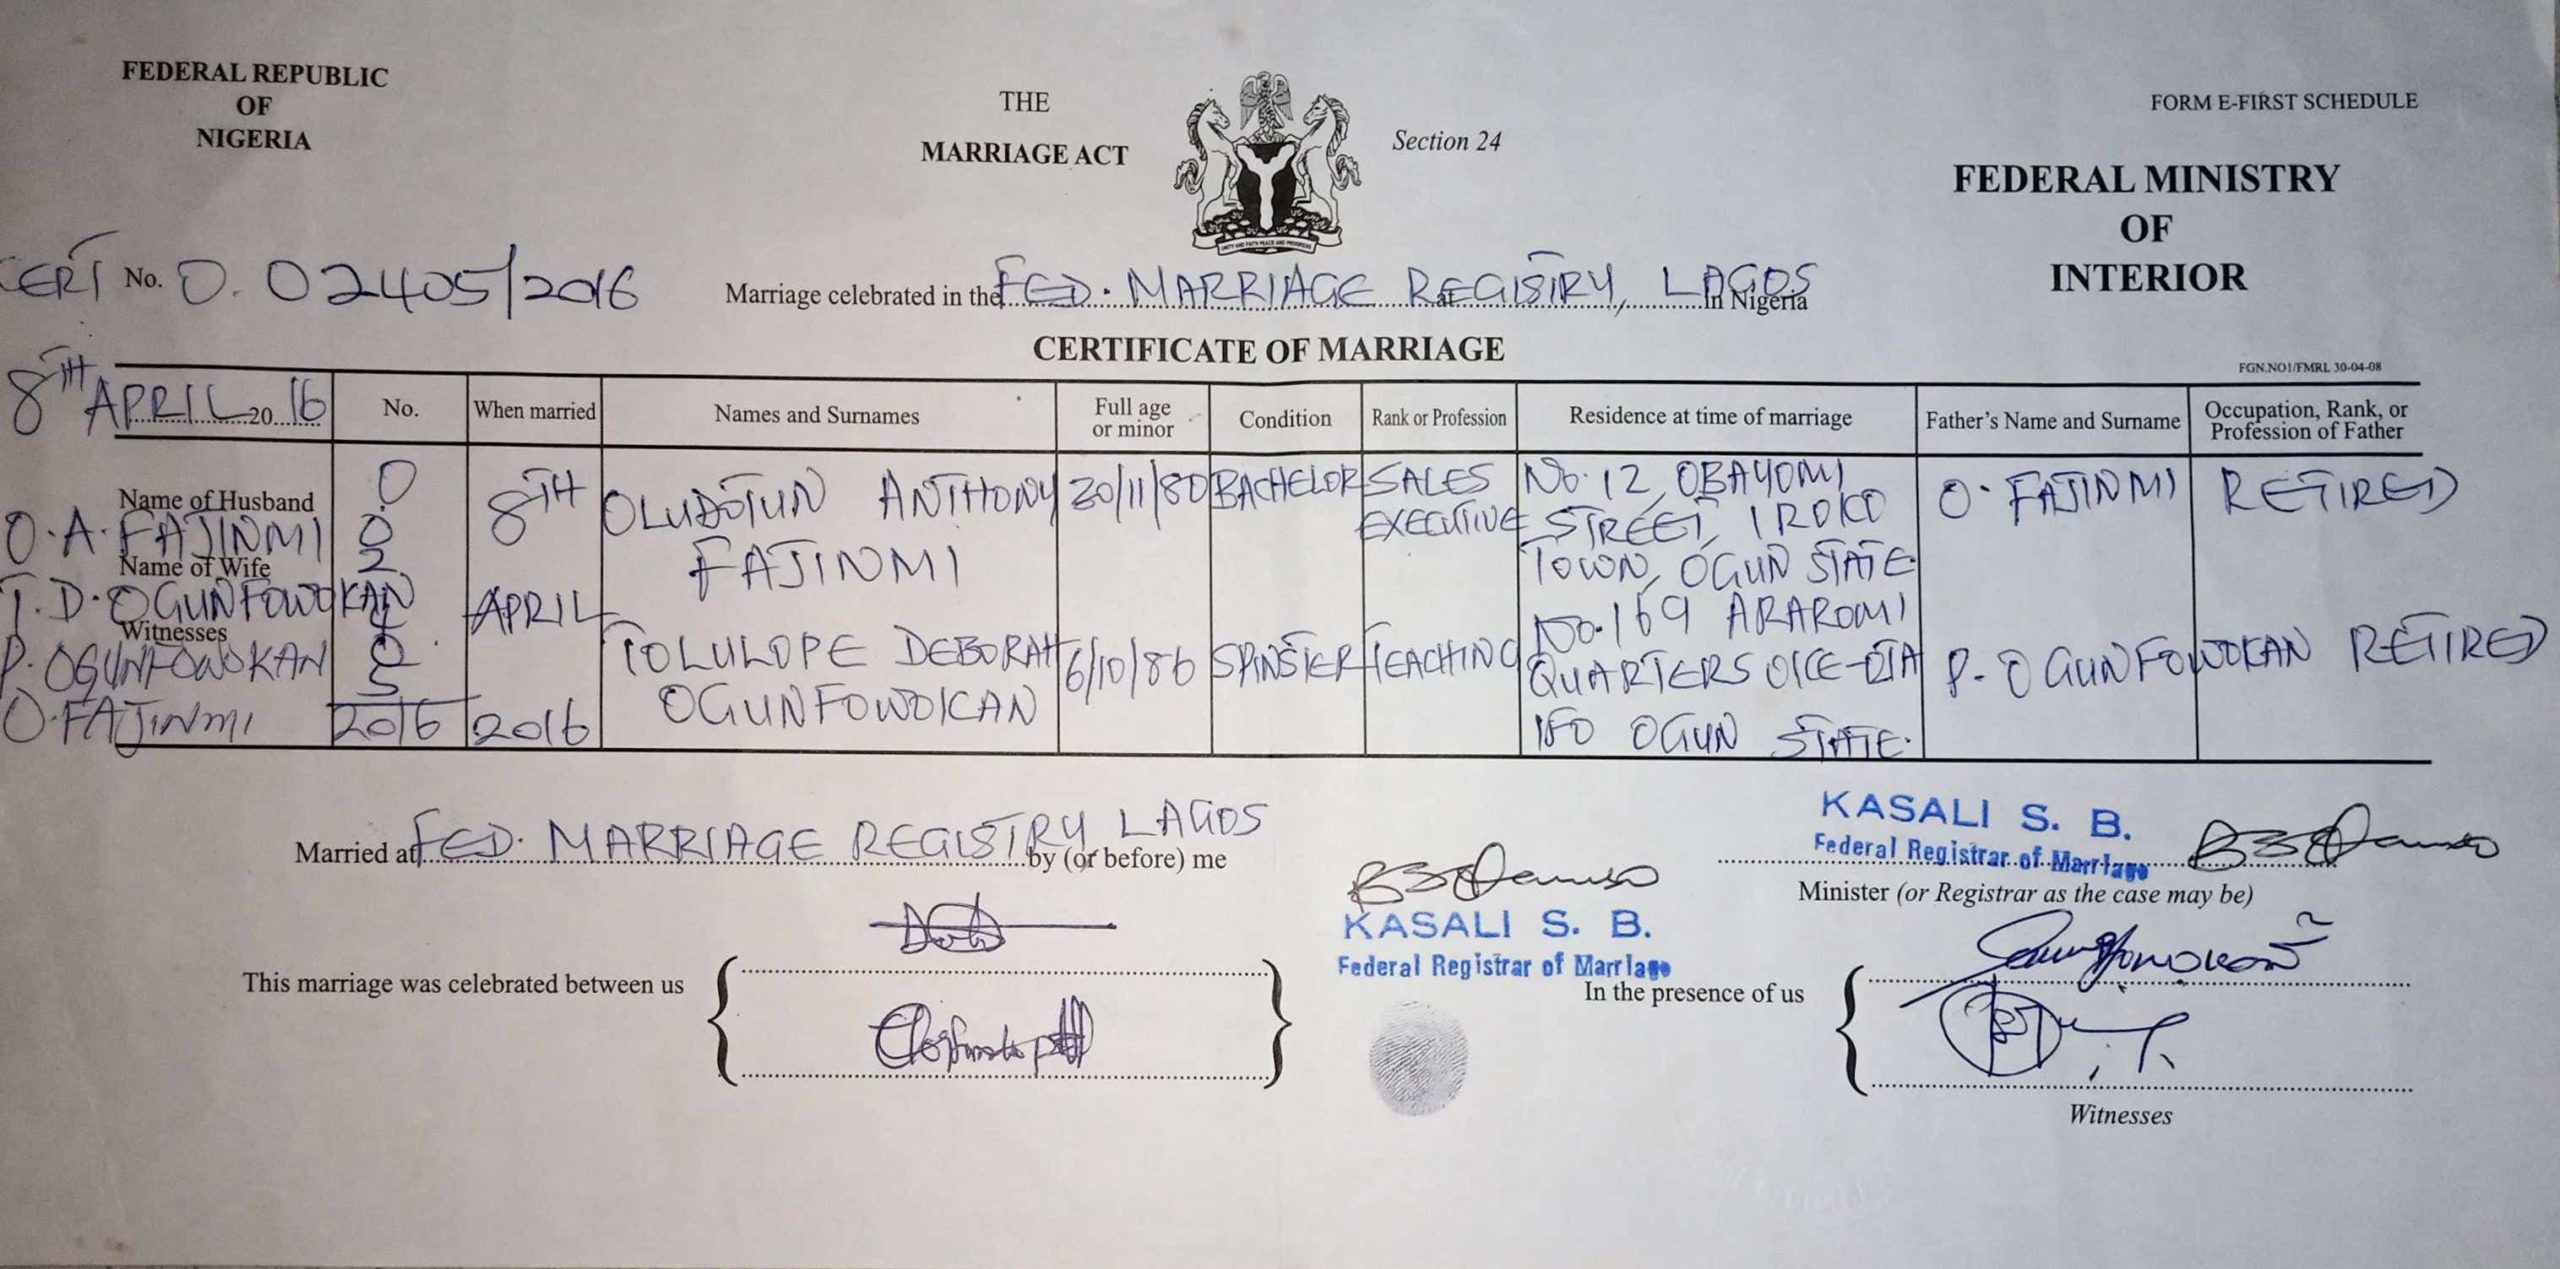 FEDERAL REPUBLIC
OF
NIGERIA
THE
MARRIAGE ACT
Section 24
FORM E-FIRST SCHEDULE
FEDERAL MINISTRY
OF
INTERIOR
UNITY AND FAITH PEACE AND PROGRESS
CERT No. 0.02405/2016
Marriage celebrated in the FED. MARRIAGE REGISTRY, LAGOS at in Nigeria
CERTIFICATE OF MARRIAGE
FGN.NO1/FMRL 30-04-08
8TH APRIL 20 16
No.
When married
Names and Surnames
Full age
or minor
Condition
Rank or Profession
Residence at time of marriage
Father's Name and Surname
Occupation, Rank, or
Profession of Father
Name of Husband
O. A. FAJINMI
Name of Wife
T. D. OGUNFOWOKAN
Witnesses
P. OGUNFOWOKAN
O. FAJINMI
0
0
2
4
0
5
2016
8TH
APRIL
2016
OLUDOTUN ANTHONY
FAJINMI
30/11/80
BACHELOR
SALES
EXECUTIVE
No. 12, OBAYOMI
STREET, IROKO
TOWN, OGUN STATE
O. FAJINMI
RETIRED
TOLULOPE DEBORAH
OGUNFOWOKAN
6/10/86
SPINSTER
TEACHING
No. 169 ARAROMI
QUARTERS OKE-OTA
IFO OGUN STATE.
P. OGUNFOWOKAN
RETIRED
Married at FED. MARRIAGE REGISTRY LAGOS by (or before) me
KASALI S. B.
Federal Registrar of Marriage
Minister (or Registrar as the case may be)
KASALI S. B.
Federal Registrar of Marriage
This marriage was celebrated between us
In the presence of us
Witnesses